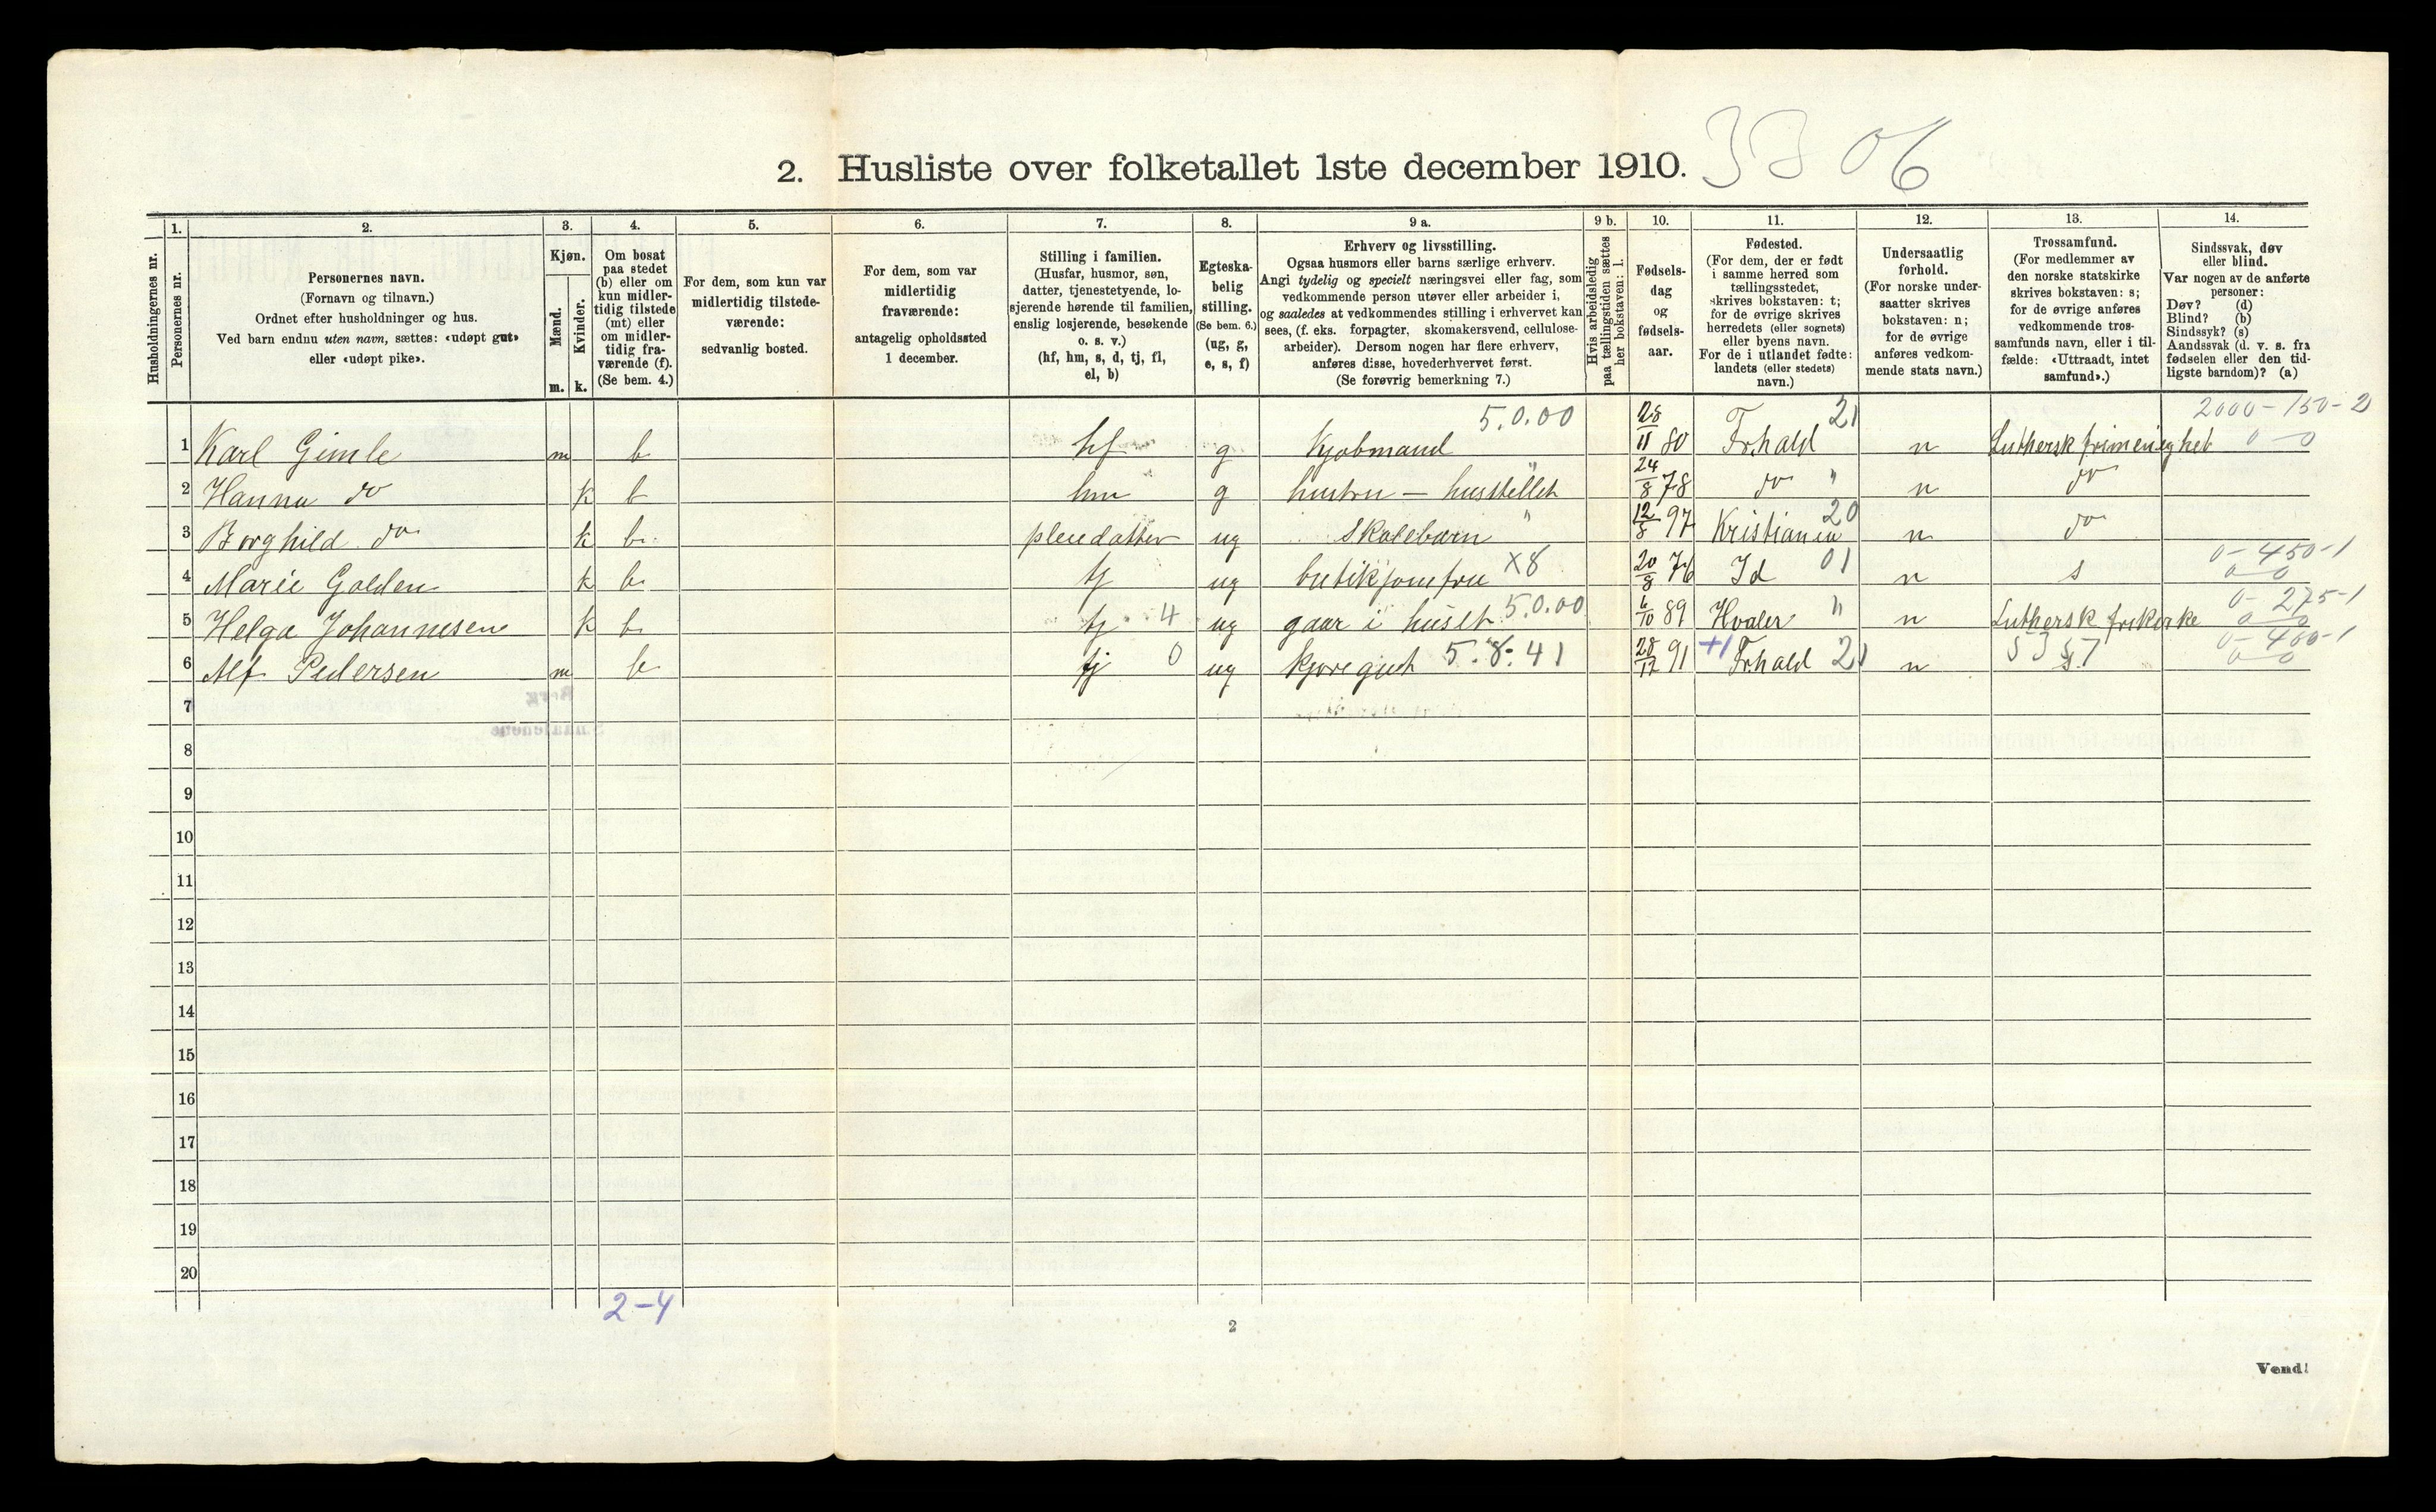 2. Husliste over folketallet 1ste december 1910. 3306
1. 2. 3. 4. 5. 6. 7. 8. 9 a. 9 b. 10. 11. 12. 13. 14.
Husholdningernes nr.
Personernes nr.
Personernes navn.
(Fornavn og tilnavn.)
Ordnet efter husholdninger og hus.
Ved barn endnu uten navn, sættes: «udøpt gut»
eller «udøpt pike».
Kjøn.
Mænd.
m.
Kvinder.
k.
Om bosat
paa stedet
(b) eller om
kun midler-
tidig tilstede
(mt) eller
om midler-
tidig fra-
værende (f).
(Se bem. 4.)
For dem, som kun var
midlertidig tilstede-
værende:
sedvanlig bosted.
For dem, som var
midlertidig
fraværende:
antagelig opholdssted
1 december.
Stilling i familien.
(Husfar, husmor, søn,
datter, tjenestetyende, lo-
sjerende hørende til familien,
enslig losjerende, besøkende
o. s. v.)
(hf, hm, s, d, tj, fl,
el, b)
Egteska-
belig
stilling.
(Se bem. 6.)
(ug, g,
e, s, f)
Erhverv og livsstilling.
Ogsaa husmors eller barns særlige erhverv.
Angi tydelig og specielt næringsvei eller fag, som
vedkommende person utøver eller arbeider i,
og saaledes at vedkommendes stilling i erhvervet kan
sees, (f. eks. forpagter, skomakersvend, cellulose-
arbeider). Dersom nogen har flere erhverv,
anføres disse, hovederhvervet først.
(Se forøvrig bemerkning 7.)
Hvis arbeidsledig
paa tællingstiden sættes
her bokstaven: l.
Fødsels-
dag
og
fødsels-
aar.
Fødested.
(For dem, der er født
i samme herred som
tællingsstedet,
skrives bokstaven: t;
for de øvrige skrives
herredets (eller sognets)
eller byens navn.
For de i utlandet fødte:
landets (eller stedets)
navn.)
Undersaatlig
forhold.
(For norske under-
saatter skrives
bokstaven: n;
for de øvrige
anføres vedkom-
mende stats navn.)
Trossamfund.
(For medlemmer av
den norske statskirke
skrives bokstaven: s;
for de øvrige anføres
vedkommende tros-
samfunds navn, eller i til-
fælde: «Uttraadt, intet
samfund».)
Sindssvak, døv
eller blind.
Var nogen av de anførte
personer:
Døv? (d)
Blind? (b)
Sindssyk? (s)
Aandssvak (d. v. s. fra
fødselen eller den tid-
ligste barndom)? (a)
1 Karl Gimle m b hf g Kjøbmand 5.0.00 28/11 80 Frhald 21 n Luthersk frimenighet 2000-150-2 0-0
2 Hanna do k b hm g hustru — husstellet " 24/8 78 do " n do
3 Borghild do k b pleiedatter ug skolebarn " 12/8 97 Kristiania 20 n do
4 Marie Golden k b tj ug butikjomfru X8 20/8 76 Id 01 n s 0-450-1 0-0
5 Helga Johannesen k b tj 4 ug gaar i huset 5.0.00 6/10 89 Hvaler " n Luthersk frikirke 0-275-1 0-0
6 Alf Pedersen m b tj 0 ug kjøregut 5.8.41 28/12 91 +1 Frhald 21 n s 5357 0-400-1 0-0
7
8
9
10
11
12
13
14
15
16
17
18
19
20
2-4
2
Vend!
Berg
Smaalenene